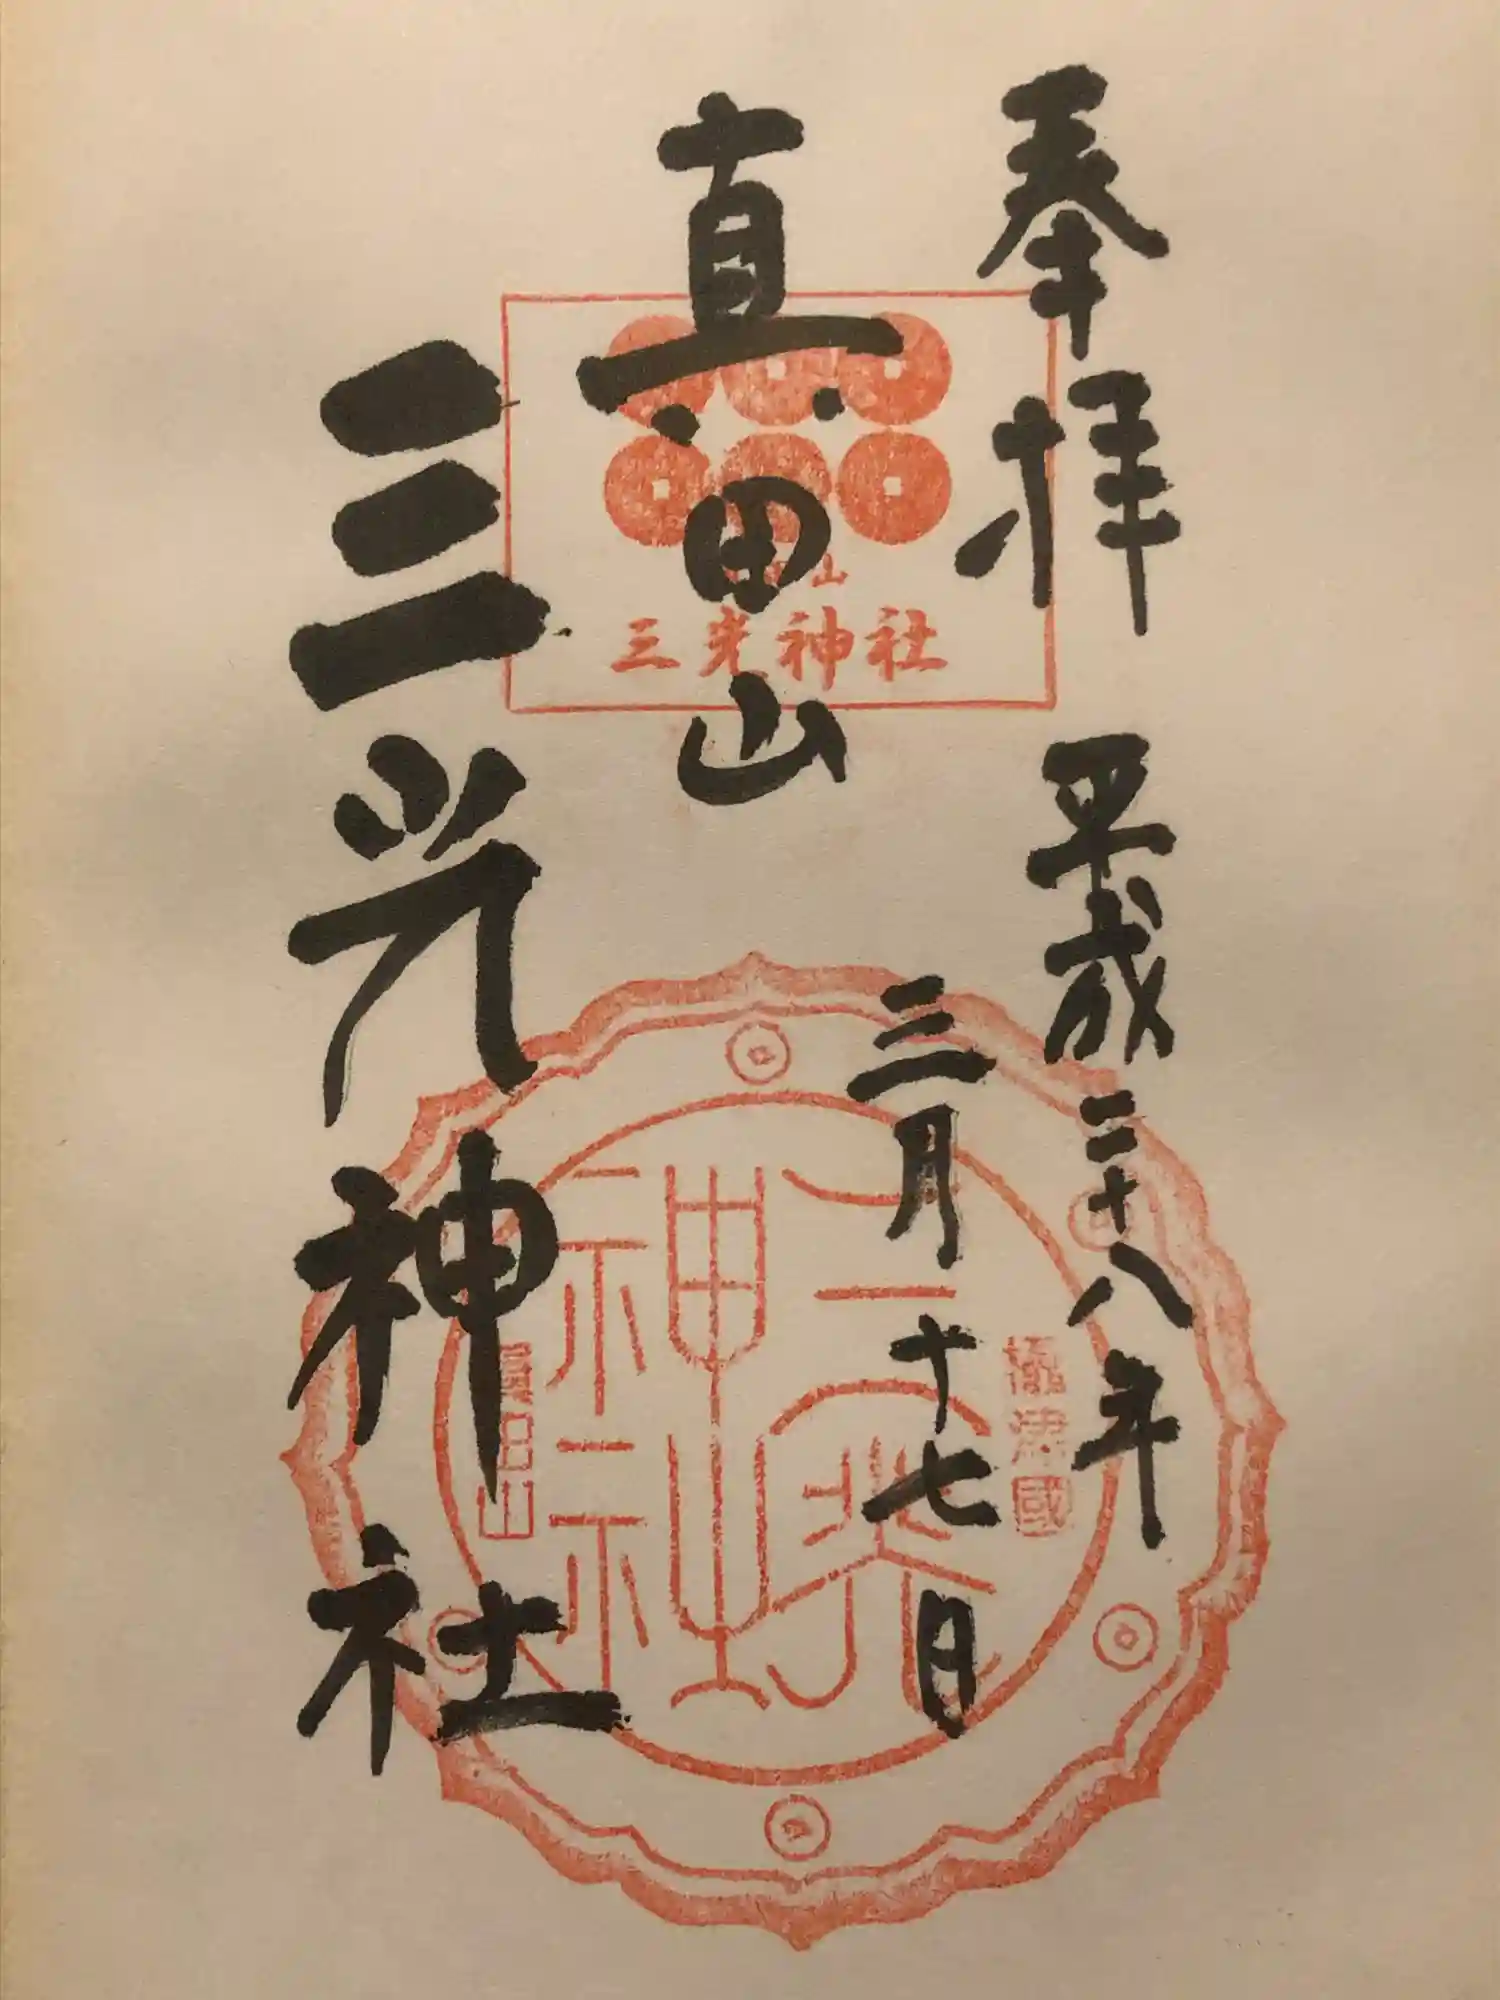 奉拝 平成二十八年
三月十七日
真田山
三光神社
山
三光神社
三光神社
攝津國
真田山